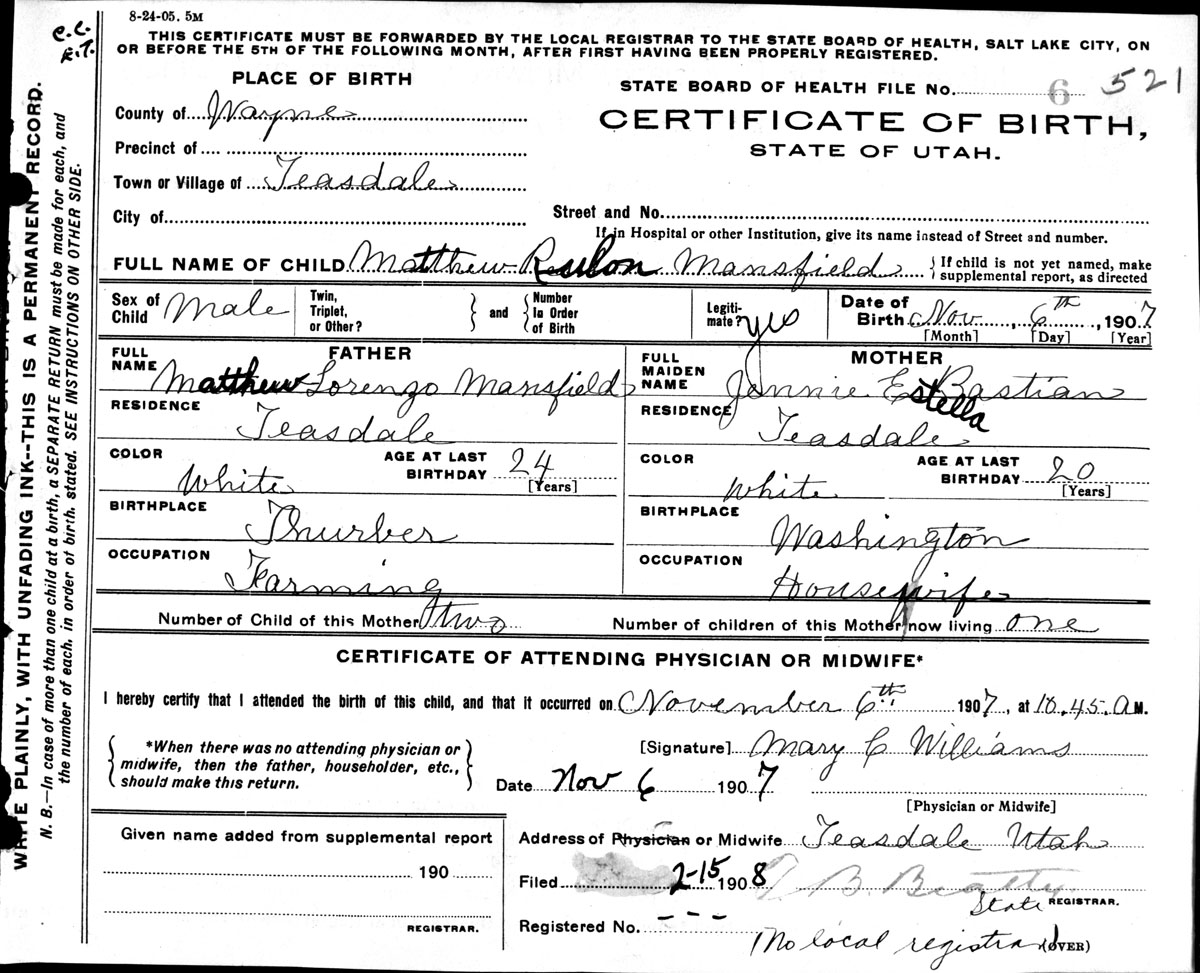 8-24-05. 5M
C.C.
R.T.
THIS CERTIFICATE MUST BE FORWARDED BY THE LOCAL REGISTRAR TO THE STATE BOARD OF HEALTH, SALT LAKE CITY, ON
OR BEFORE THE 5TH OF THE FOLLOWING MONTH, AFTER FIRST HAVING BEEN PROPERLY REGISTERED.
WRITE PLAINLY, WITH UNFADING INK--THIS IS A PERMANENT RECORD.
N. B.—In case of more than one child at a birth, a SEPARATE RETURN must be made for each, and
the number of each, in order of birth, stated. SEE INSTRUCTIONS ON OTHER SIDE.
PLACE OF BIRTH
County of Wayne
Precinct of
Town or Village of Teasdale
City of
STATE BOARD OF HEALTH FILE No. 6 521
CERTIFICATE OF BIRTH,
STATE OF UTAH.
Street and No.
If in Hospital or other Institution, give its name instead of Street and number.
FULL NAME OF CHILD Matthew Reulon Mansfield
If child is not yet named, make
supplemental report, as directed
Sex of Child Male
Twin, Triplet, or Other?
and
Number In Order of Birth
Legiti-mate? yes
Date of Birth Nov 6th, 1907
[Month] [Day] [Year]
FATHER
FULL NAME Matthew Lorenzo Mansfield
RESIDENCE Teasdale
COLOR White
AGE AT LAST BIRTHDAY 24
[Years]
BIRTHPLACE Thurber
OCCUPATION Farming
MOTHER
FULL MAIDEN NAME Jennie Estella Bastian
RESIDENCE Teasdale
COLOR White
AGE AT LAST BIRTHDAY 20
[Years]
BIRTHPLACE Washington
OCCUPATION Housewife
Number of Child of this Mother two
Number of children of this Mother now living one
CERTIFICATE OF ATTENDING PHYSICIAN OR MIDWIFE*
I hereby certify that I attended the birth of this child, and that it occurred on November 6th 1907, at 10.45.A M.
*When there was no attending physician or
midwife, then the father, householder, etc.,
should make this return.
[Signature] Mary C Williams
Date Nov 6 1907
[Physician or Midwife]
Given name added from supplemental report
190
REGISTRAR.
Address of Physician or Midwife Teasdale Utah
Filed 2-15 1908 B. Beatty
State REGISTRAR.
Registered No. ---
(No local registrar)
(OVER)